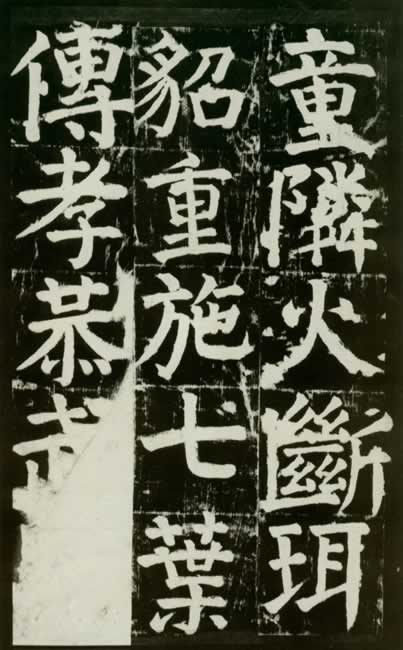 童隣火斷珥
貂重施七葉
傳孝恭